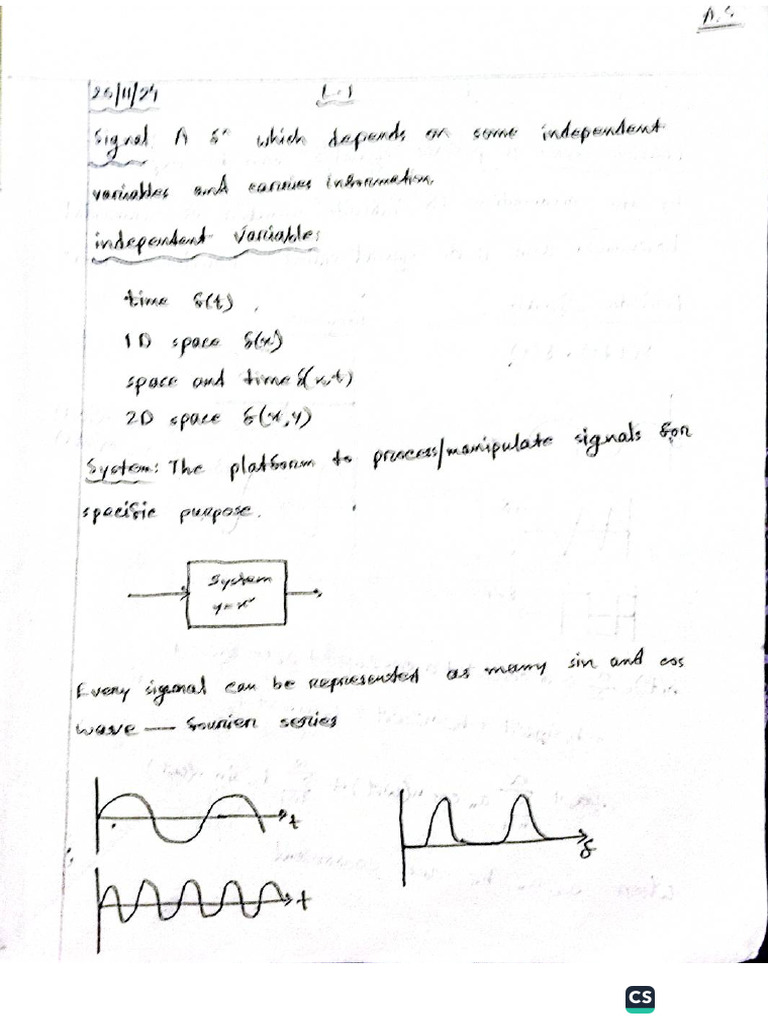 A.S
25/11/24
L-1
Signal: A fⁿ which depends on some independent
variables and carries information.
independent variables
time f(t),
1D space f(x)
space and time f(x,t)
2D space f(x,y)
System: The platform to process/manipulate signals for
specific purpose.
System
y=x²
Every signal can be represented as many sin and cos
wave — fourier series
t
f
t
CS